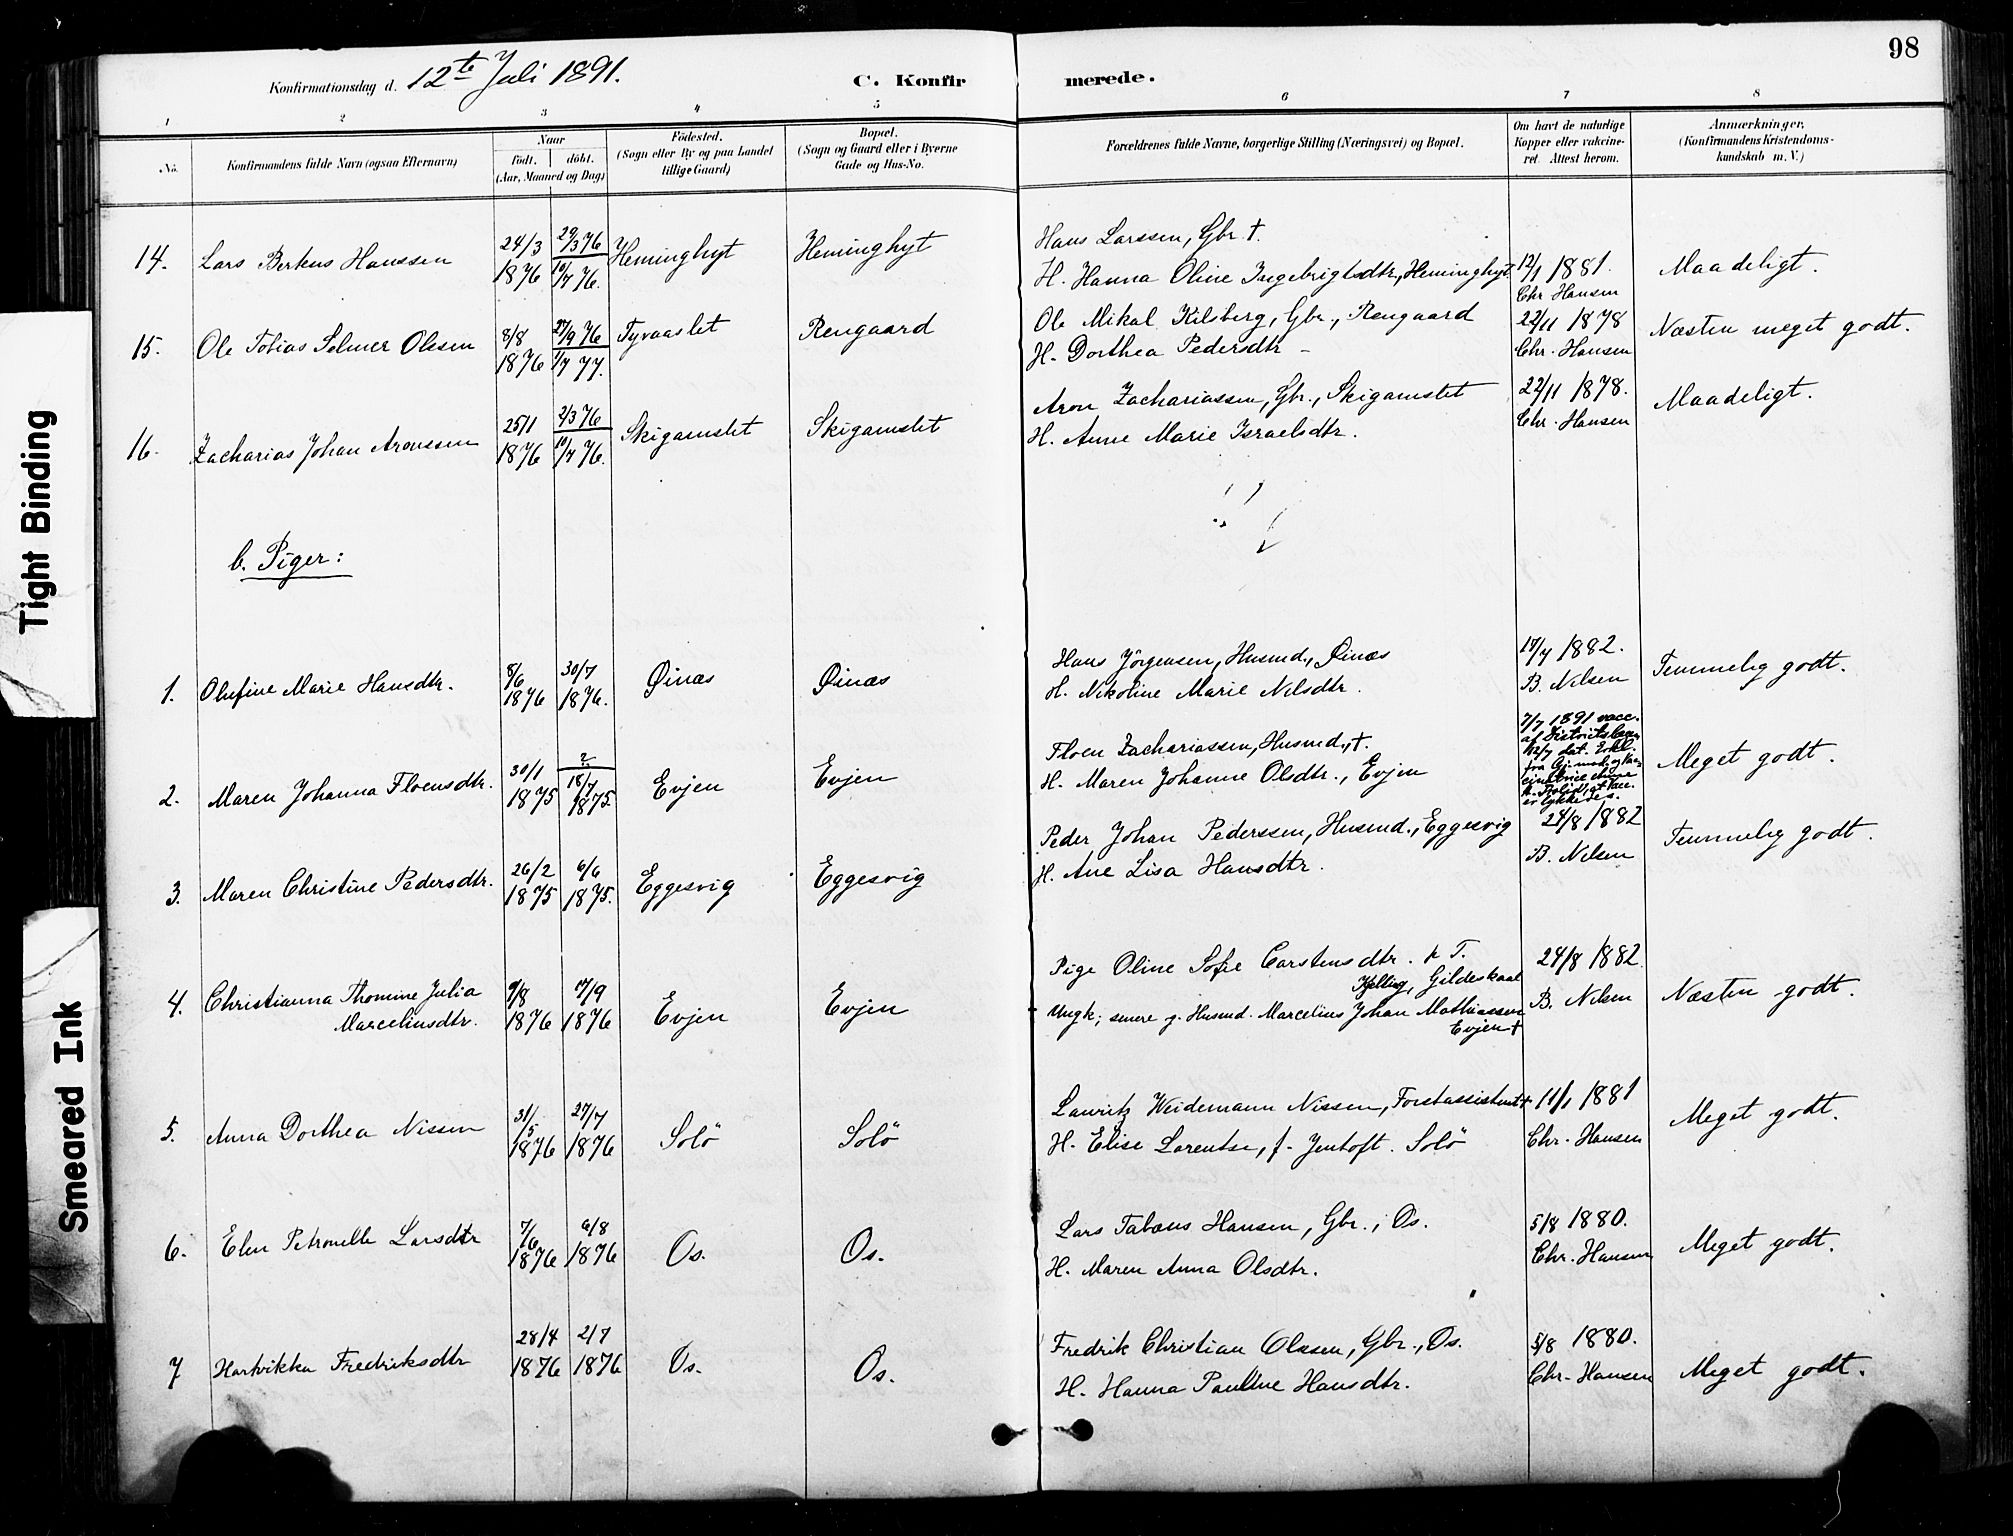 98
Konfirmationsdag d. 12te Juli 1891.
C. Konfirmerede.
1 2 3 4 5 6 7 8
No.
Konfirmandens fulde Navn (ogsaa Efternavn)
Naar
født. døbt.
(Aar, Maaned og Dag)
Fødested.
(Sogn eller By og paa Landet
tillige Gaard)
Bopæl.
(Sogn og Gaard eller i Byerne
Gade og Hus-No.
Forældrenes fulde Navne, borgerlige Stilling (Næringsvei) og Bopæl.
Om havt de naturlige
Kopper eller vakcine-
ret. Attest herom.
Anmærkninger,
(Konfirmandens Kristendoms-
kundskab m. V.)
14. Lars Berkus Hanssen 24/3 1876 29/3 76 10/7 76. Heminghyt Heminghyt
Hans Larssen, Gbr. †.
H. Hanna Oline Ingebrigtsdtr., Heminghyt
12/1 1881.
Chr Hansen
Maadeligt.
15. Ole Tobias Selmer Olesen 8/8 1876 27/9 76 1/7 77. Tyvaaslet Rengaard
Ole Mikal Kilsberg, Gbr., Rengaard
H. Dorthea Pedersdtr -
22/11 1878
Chr. Hansen
Næsten meget godt.
16. Zacharias Johan Aronssen 25/1 1876 2/3 76 10/7 76. Skigamslet Skigamslet
Aron Zachariassen, Gbr., Skigamslet
H. Anne Marie Israelsdtr.
22/11 1878.
Chr. Hansen
Maadeligt.
b. Piger:
1. Olufine Marie Hansdtr. 8/6 1876 30/7 1876. Øinæs Øinæs
Hans Jörgensen, Husmd., Øinæs
H. Nikoline Marie Nilsdtr.
17/7 1882.
B. Nilsen
Temmelig godt.
2. Maren Johanna Floensdtr. 30/1 1875 ? 18/7 1875. Evjen Evjen
Floen Zachariassen, Husmd., †.
H. Maren Johanne Olsdtr., Evjen
7/7 1891 vacc.
af Districtslæge
12/7 dat. Erkl.
fra
at Vacc.
er lykkedes.
Meget godt.
3. Maren Christine Pedersdtr. 26/2 1875 6/6 1875. Eggesvig Eggesvig
Peder Johan Pederssen, Husmd., Eggesvig
H. Ane Lisa Hansdtr.
24/8 1882
B. Nilsen
Temmelig godt.
4. Christianna Thomine Julia
Marcelinsdtr. 9/8 1876 17/9 1876 Evjen Evjen
Pige Oline Sofie Carstensdtr. p. T.
Kjelling, Gildeskaal
Ungk; senere g. Husmd. Marcelius Johan Mathiassen
Evjen †
24/8 1882
B. Nilsen
Næsten godt.
5. Anna Dorthea Nissen 31/5 1876 27/7 1876 Solö Solö
Lauritz Weidemann Nissen, Forstassistent †
H. Elise Lorentse, f. Jentoft. Solö
11/1 1881
Chr. Hansen
Meget godt.
6. Elen Petronelle Larsdtr 7/6 1876 6/8 1876 Os. Os.
Lars Tabæus Hansen, Gbr., Os.
H. Maren Anna Olsdtr.
5/8 1880.
Chr. Hansen
Meget godt.
7 Hartvikka Fredriksdtr 28/4 1876 2/7 1876 Os. Os.
Fredrik Christian Olssen, Gbr., Os.
H. Hanna Pauline Hansdtr.
5/8 1880.
Chr. Hansen
Meget godt.
Tight Binding
Smeared Ink